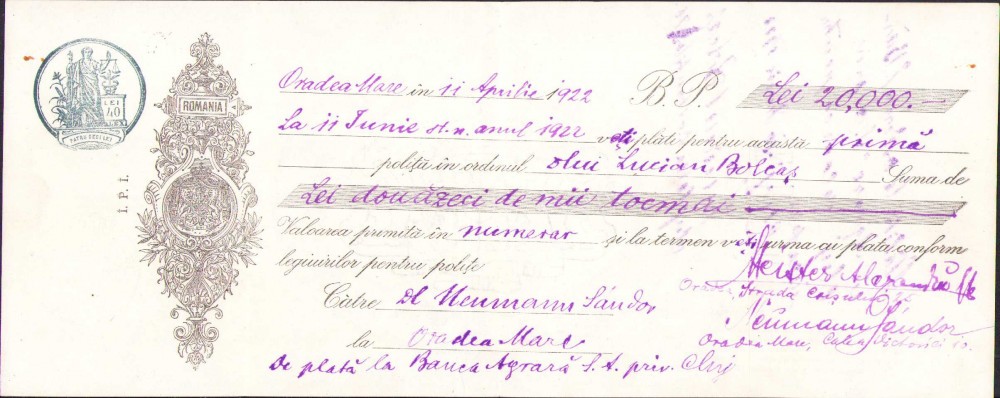 LEI
40
PATRU-ZECI LEI
ROMANIA
I. P. I.
Oradea Mare în 11 Aprilie 1922 B. P. Lei 20,000.—
La 11 Iunie st. n. anul 1922 veți plăte pentru aceasta primă
poliță în ordinul dlui Lucian Bolcaș Suma de
Lei douăzeci de mii tocmai
Valoarea primită în numerar și la termen veți urma cu plata conform
legiuirilor pentru polițe
Alexandru
Oradea, Strada Crișului
Către dl Neumann Sándor
Neumann Sándor
la Oradea Mare
Oradea Mare, Calea Victoriei
De plată la Banca Agrară S. A. priv. Cluj